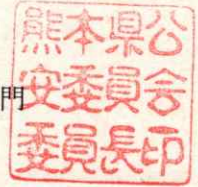 熊本県公
安委員会
委員長印
門